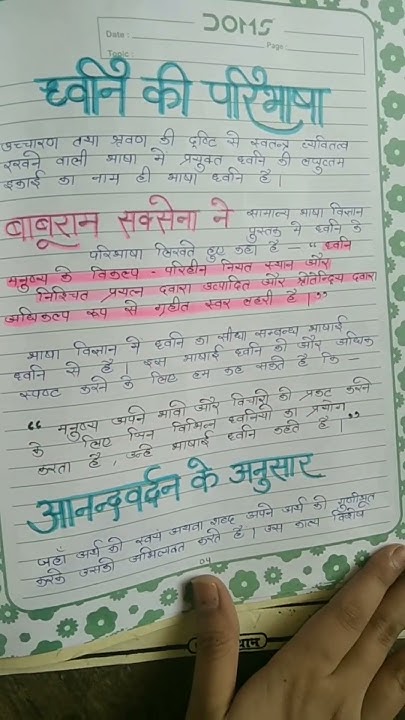 DOMS
Date :
Page :
Topic :
ध्वनि की परिभाषा
उच्चारण तथा श्रवण की दृष्टि से स्वतन्त्र व्यक्तित्व
रखने वाली भाषा में प्रयुक्त ध्वनि की लघुत्तम
इकाई का नाम ही भाषा ध्वनि है।
बाबूराम सक्सेना ने सामान्य भाषा विज्ञान
पुस्तक में ध्वनि के
परिभाषा लिखते हुए कहा है – “ ध्वनि
मनुष्य के विकल्प - परिहीन नियत स्थान और
निश्चित प्रयत्न दवारा उत्पादित और श्रोतेन्द्रिय दवारा
अविकल्प रूप से गृहीत स्वर लहरी है।”
भाषा विज्ञान में ध्वनि का सीधा सम्बन्ध भाषाई
ध्वनि से है। इस भाषाई ध्वनि को और अधिक
स्पष्ट करने के लिए हम कह सकते है कि –
“ मनुष्य अपने भावों और विचारों को प्रकट करने
के लिए जिन विभिन्न ध्वनियों का प्रयोग
करता है, उन्हे भाषाई ध्वनि कहते है।”
आनन्दवर्दन के अनुसार
जहाँ अर्थ को स्वयं अथवा शब्द अपने अर्थ को गुणीभूत
करके उसको अभिव्यक्त करते है। उस काव्य विशेष
04